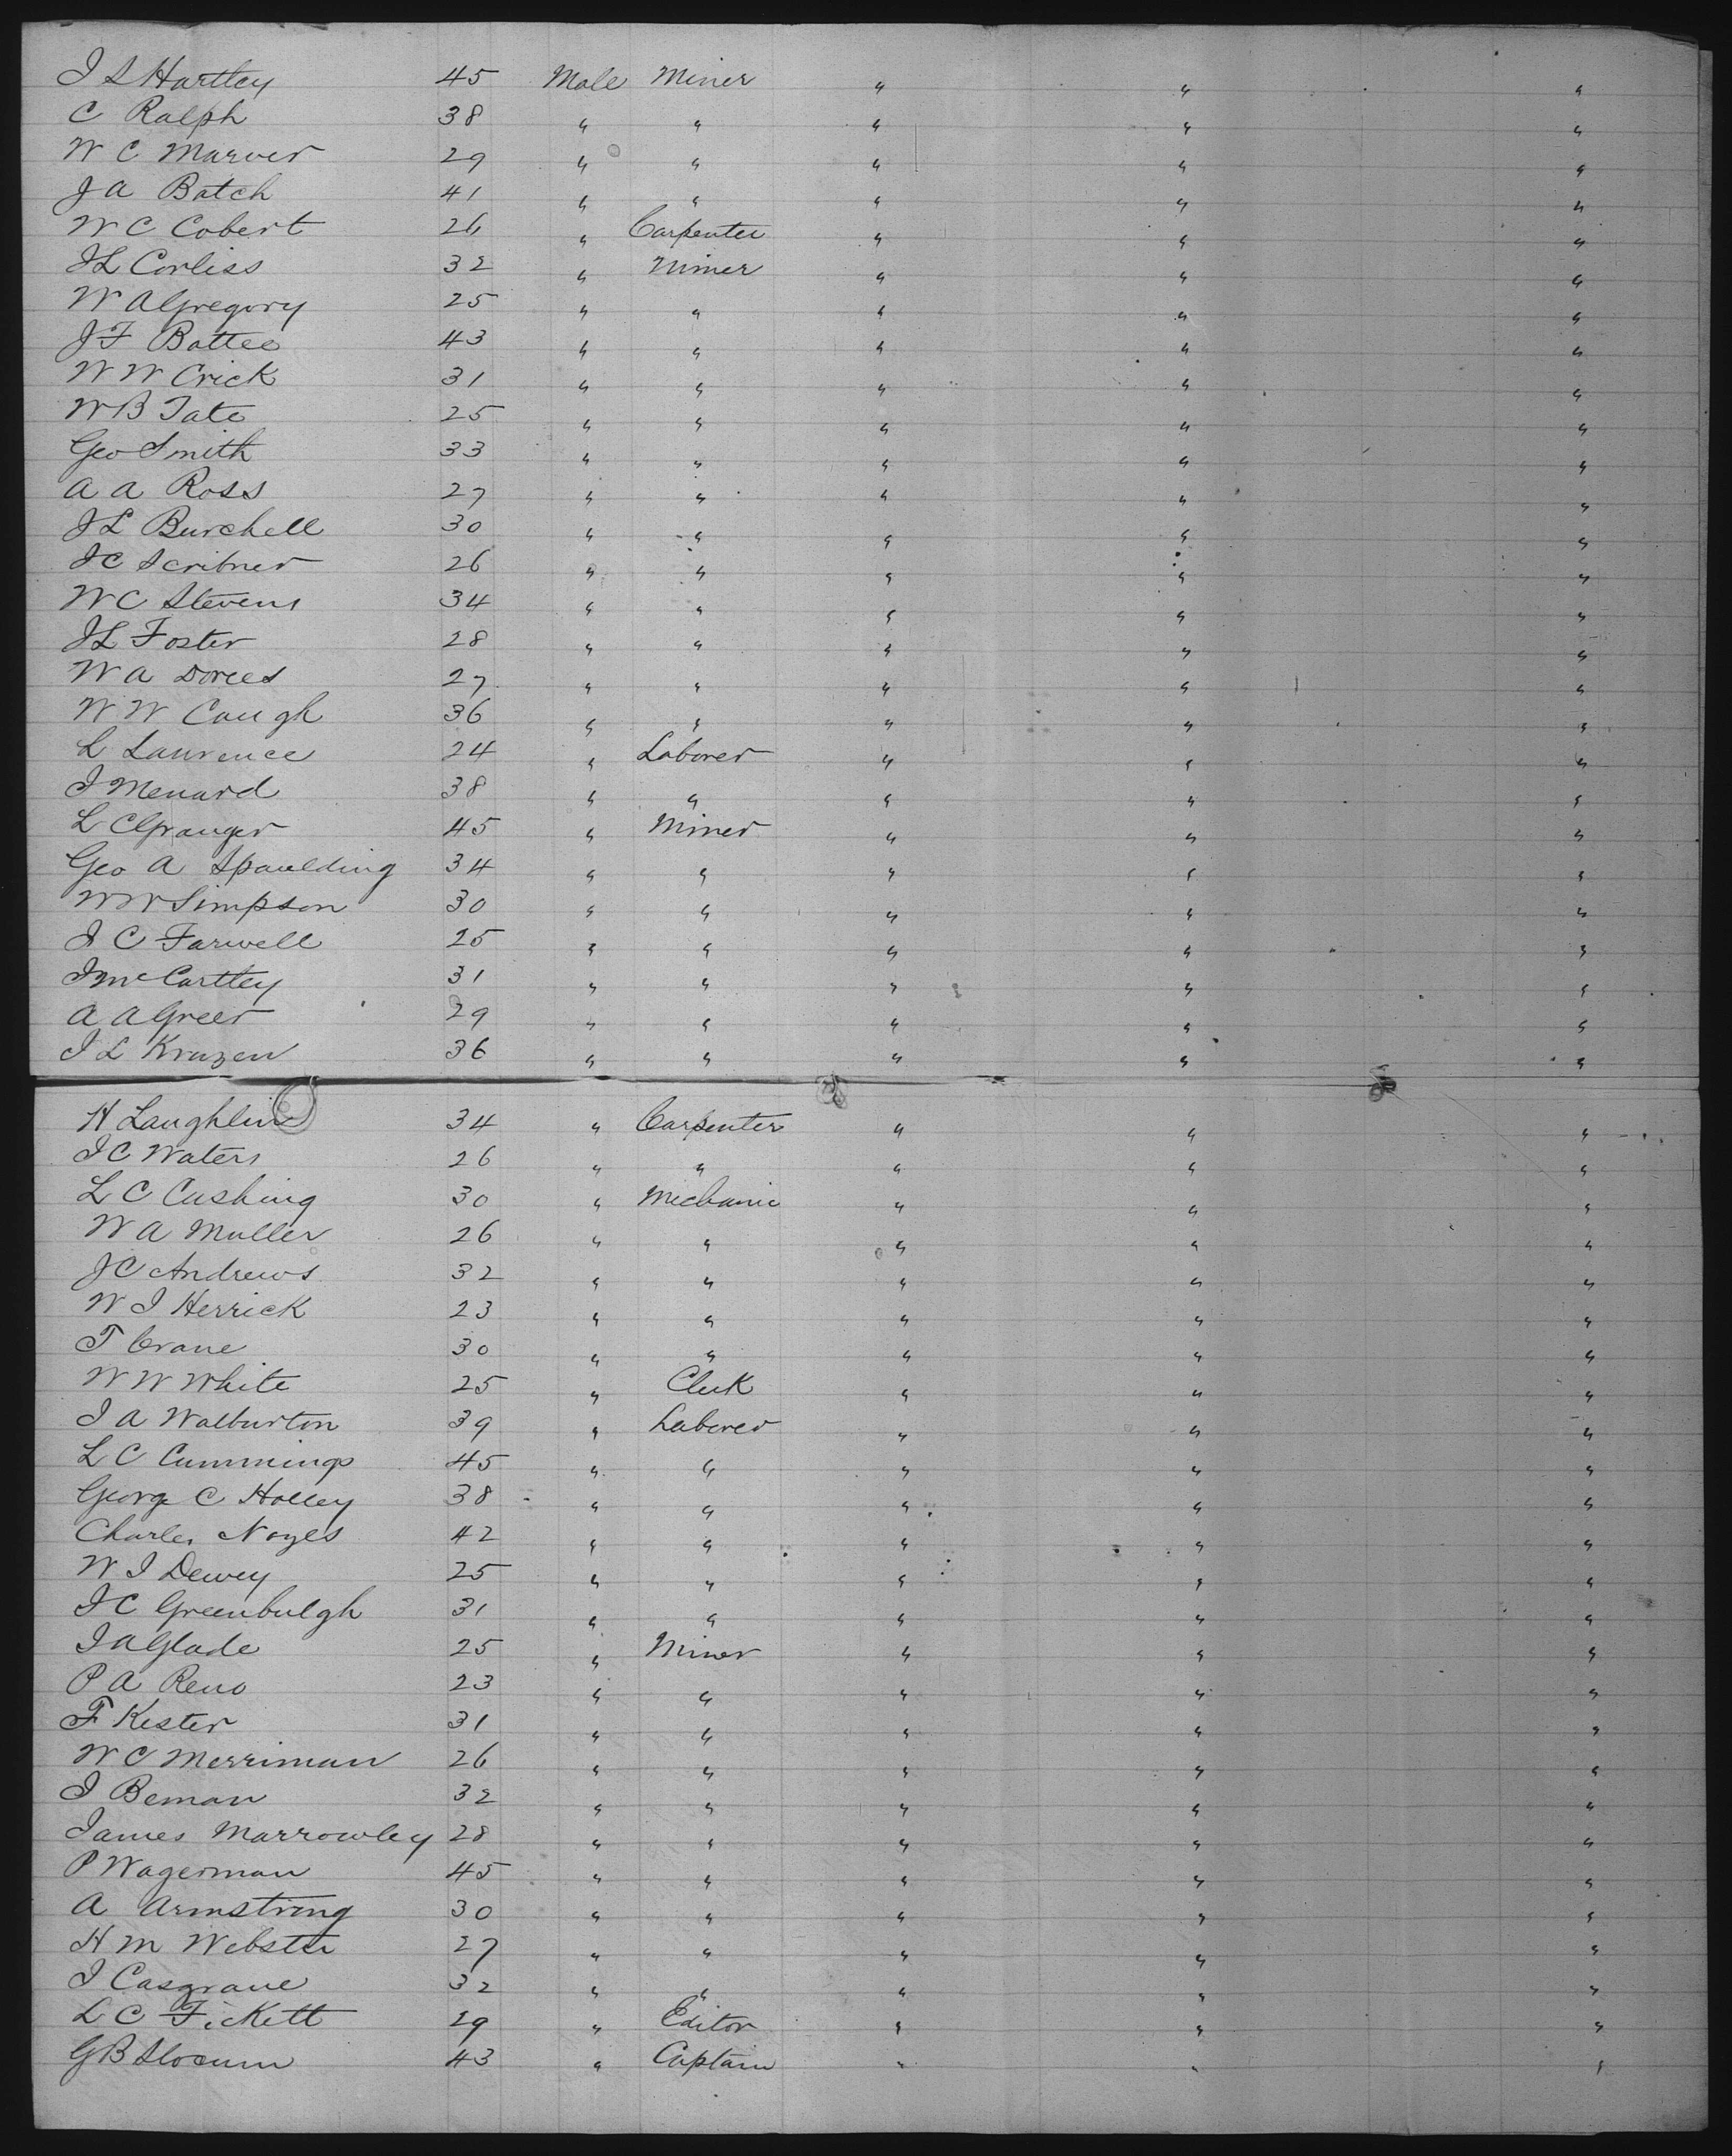 J S Hartley 45 Male Miner " " "
C Ralph 38 " " " " "
W C Marver 29 " " " " "
J A Batch 41 " " " " "
W C Cobert 26 " Carpenter " " "
J L Corliss 32 " Miner " " "
W A Gregory 25 " " " " "
J F Battee 43 " " " " "
W W Crick 31 " " " " "
W B Tate 25 " " " " "
Geo Smith 33 " " " " "
A A Ross 27 " " " " "
J L Burchell 30 " " " " "
J C Scribner 26 " " " " "
W C Stevens 34 " " " " "
J L Foster 28 " " " " "
W A 27 " " " " "
W W Caugh 36 " " " " "
L Laurence 24 " Laborer " " "
J Menard 38 " " " " "
L C Granger 45 " Miner " " "
Geo A Spaulding 34 " " " " "
W W Simpson 30 " " " " "
J C Farwell 25 " " " " "
J McCartley 31 " " " " "
A A Greer 29 " " " " "
J L Kruzen 36 " " " " "
H Laughlin 34 " Carpenter " " "
J C Waters 26 " " " " "
L C Cushing 30 " Mechanic " " "
W A Muller 26 " " " " "
J C Andrews 32 " " " " "
W J Herrick 23 " " " " "
T Crane 30 " " " " "
W W White 25 " Clerk " " "
J A Walburton 39 " Laborer " " "
L C Cummings 45 " " " " "
George C Holley 38 " " " " "
Charles Noyes 42 " " " " "
W J Dewey 25 " " " " "
J C Greenbulgh 31 " " " " "
J A Glade 25 " Miner " " "
P A Reno 23 " " " " "
F Kester 31 " " " " "
W C Merriman 26 " " " " "
J Beman 32 " " " " "
James Marrowley 28 " " " " "
P Wagerman 45 " " " " "
A Armstrong 30 " " " " "
H M Webster 27 " " " " "
J Casgrave 32 " " " " "
L C Fickett 29 " Editor " " "
G B Slocum 43 " Captain " " "